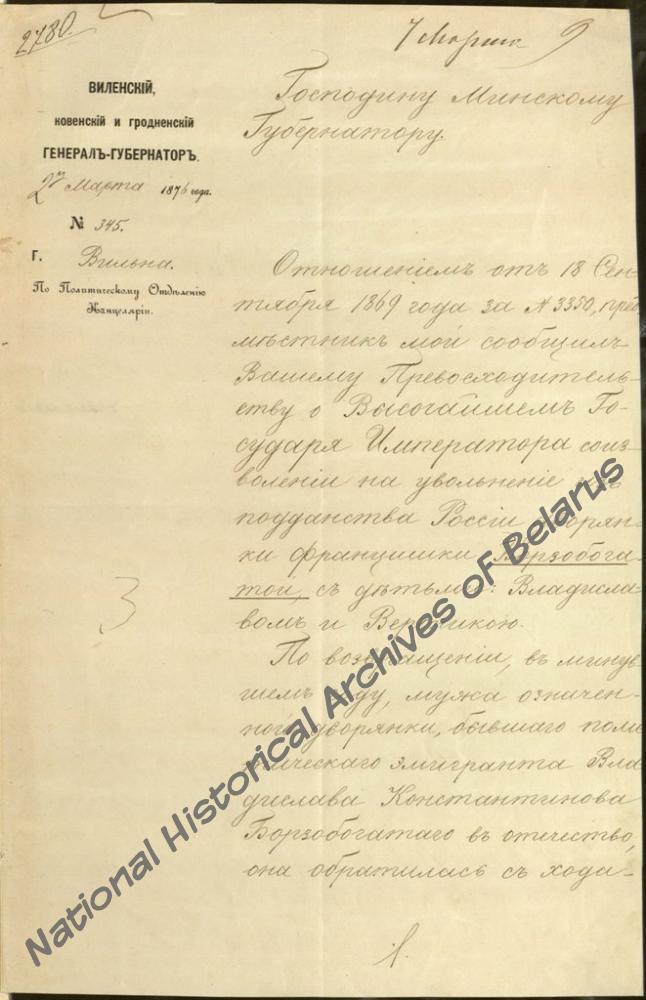 2780.
7 Марта 9
ВИЛЕНСКІЙ,
КОВЕНСКІЙ И ГРОДНЕНСКІЙ
ГЕНЕРАЛЪ-ГУБЕРНАТОРЪ.
2го Марта 1876 года.
№ 345.
Г. Вильна.
По Политическому Отдѣленію
Канцеляріи.
Господину Минскому
Губернатору.
Отношеніемъ отъ 18 Сен-
тября 1869 года за № 3350, пред
мѣстникъ мой сообщилъ
Вашему Превосходитель-
ству о Высочайшемъ Го-
сударя Императора соиз-
воленіи на увольненіе изъ
подданства Россіи дворян-
ки Францишки Борзобога-
той, съ дѣтьми: Владисла-
вомъ и Вероникою.
По возвращеніи, въ минув-
шемъ году, мужа означен-
ной дворянки, бывшаго поли
тическаго эмигранта Вла-
дислава Константинова
Борзобогатаго въ отечество,
она обратилась съ хода-
3
National Historical Archives of Belarus